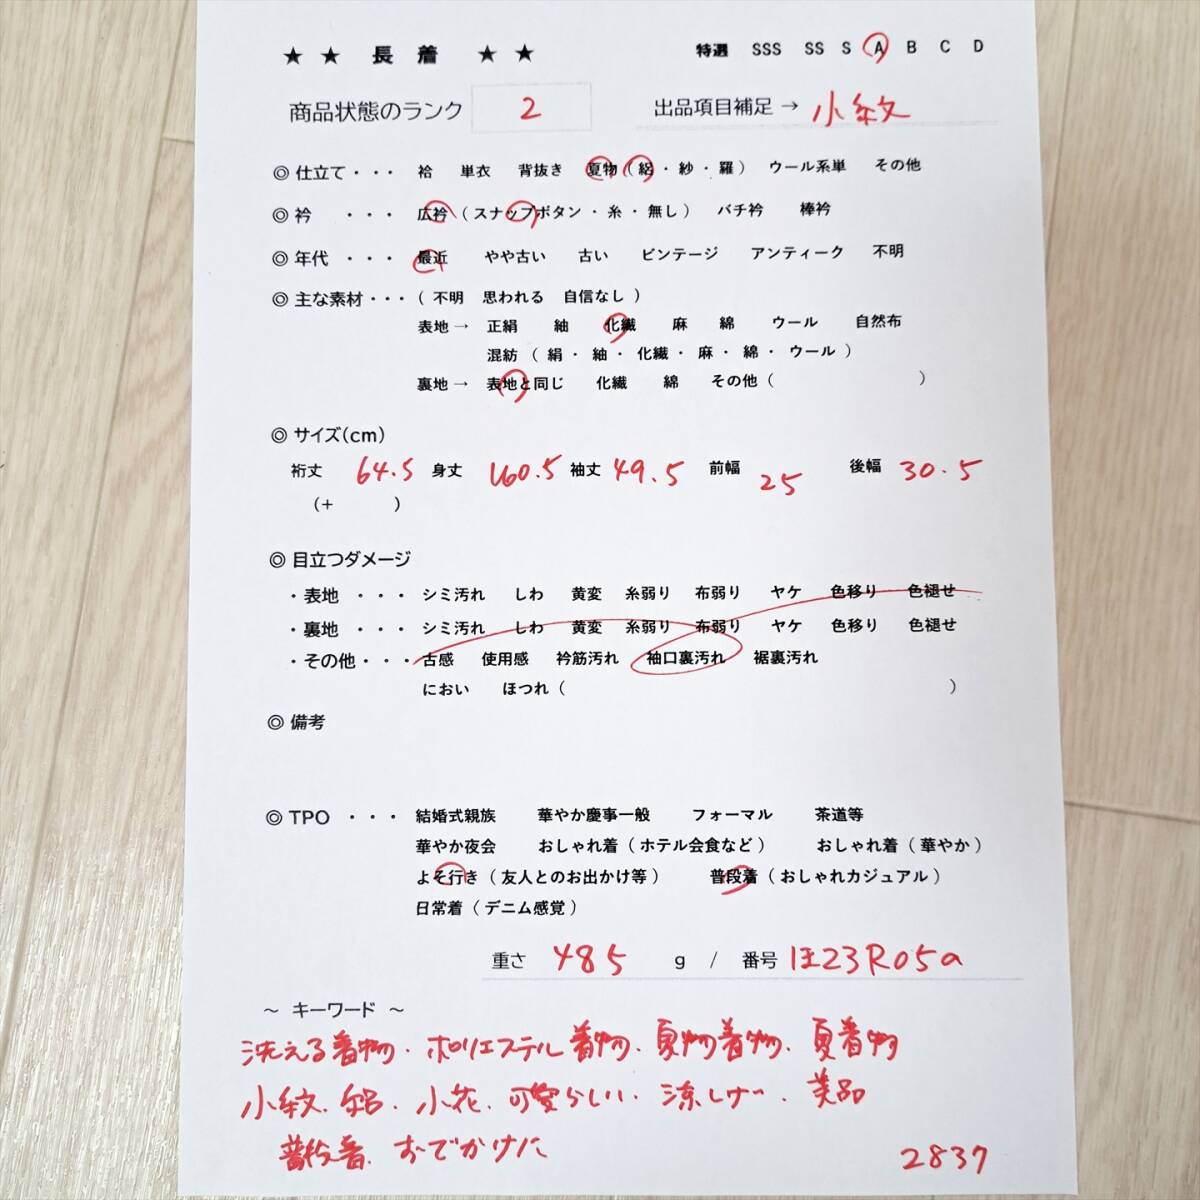 ★ ★ 長 着 ★ ★ 特選 SSS SS S A B C D
商品状態のランク 2 出品項目補足 → 小紋
◎ 仕立て・・・ 袷 単衣 背抜き 夏物（絽・紗・羅） ウール系単 その他
◎ 衿 ・・・ 広衿（スナップボタン・糸・無し） バチ衿 棒衿
◎ 年代 ・・・ 最近 やや古い 古い ビンテージ アンティーク 不明
◎ 主な素材・・・（ 不明 思われる 自信なし ）
表地 → 正絹 紬 化繊 麻 綿 ウール 自然布
混紡（ 絹・紬・化繊・麻・綿・ウール ）
裏地 → 表地と同じ 化繊 綿 その他（ ）
◎ サイズ(cm)
裄丈 64.5 身丈 160.5 袖丈 49.5 前幅 25 後幅 30.5
（+ ）
◎ 目立つダメージ
・表地 ・・・ シミ汚れ しわ 黄変 糸弱り 布弱り ヤケ 色移り 色褪せ
・裏地 ・・・ シミ汚れ しわ 黄変 糸弱り 布弱り ヤケ 色移り 色褪せ
・その他・・・ 古感 使用感 衿筋汚れ 袖口裏汚れ 裾裏汚れ
におい ほつれ（ ）
◎ 備考
◎ TPO ・・・ 結婚式親族 華やか慶事一般 フォーマル 茶道等
華やか夜会 おしゃれ着（ホテル会食など） おしゃれ着（華やか）
よそ行き（友人とのお出かけ等） 普段着（おしゃれカジュアル）
日常着（デニム感覚）
重さ 485 g / 番号 ほ23R05a
～ キーワード ～
洗える着物・ポリエステル着物・夏物着物・夏着物
小紋・絽・小花・可愛らしい・涼しげ・美品
普段着・おでかけに
2837